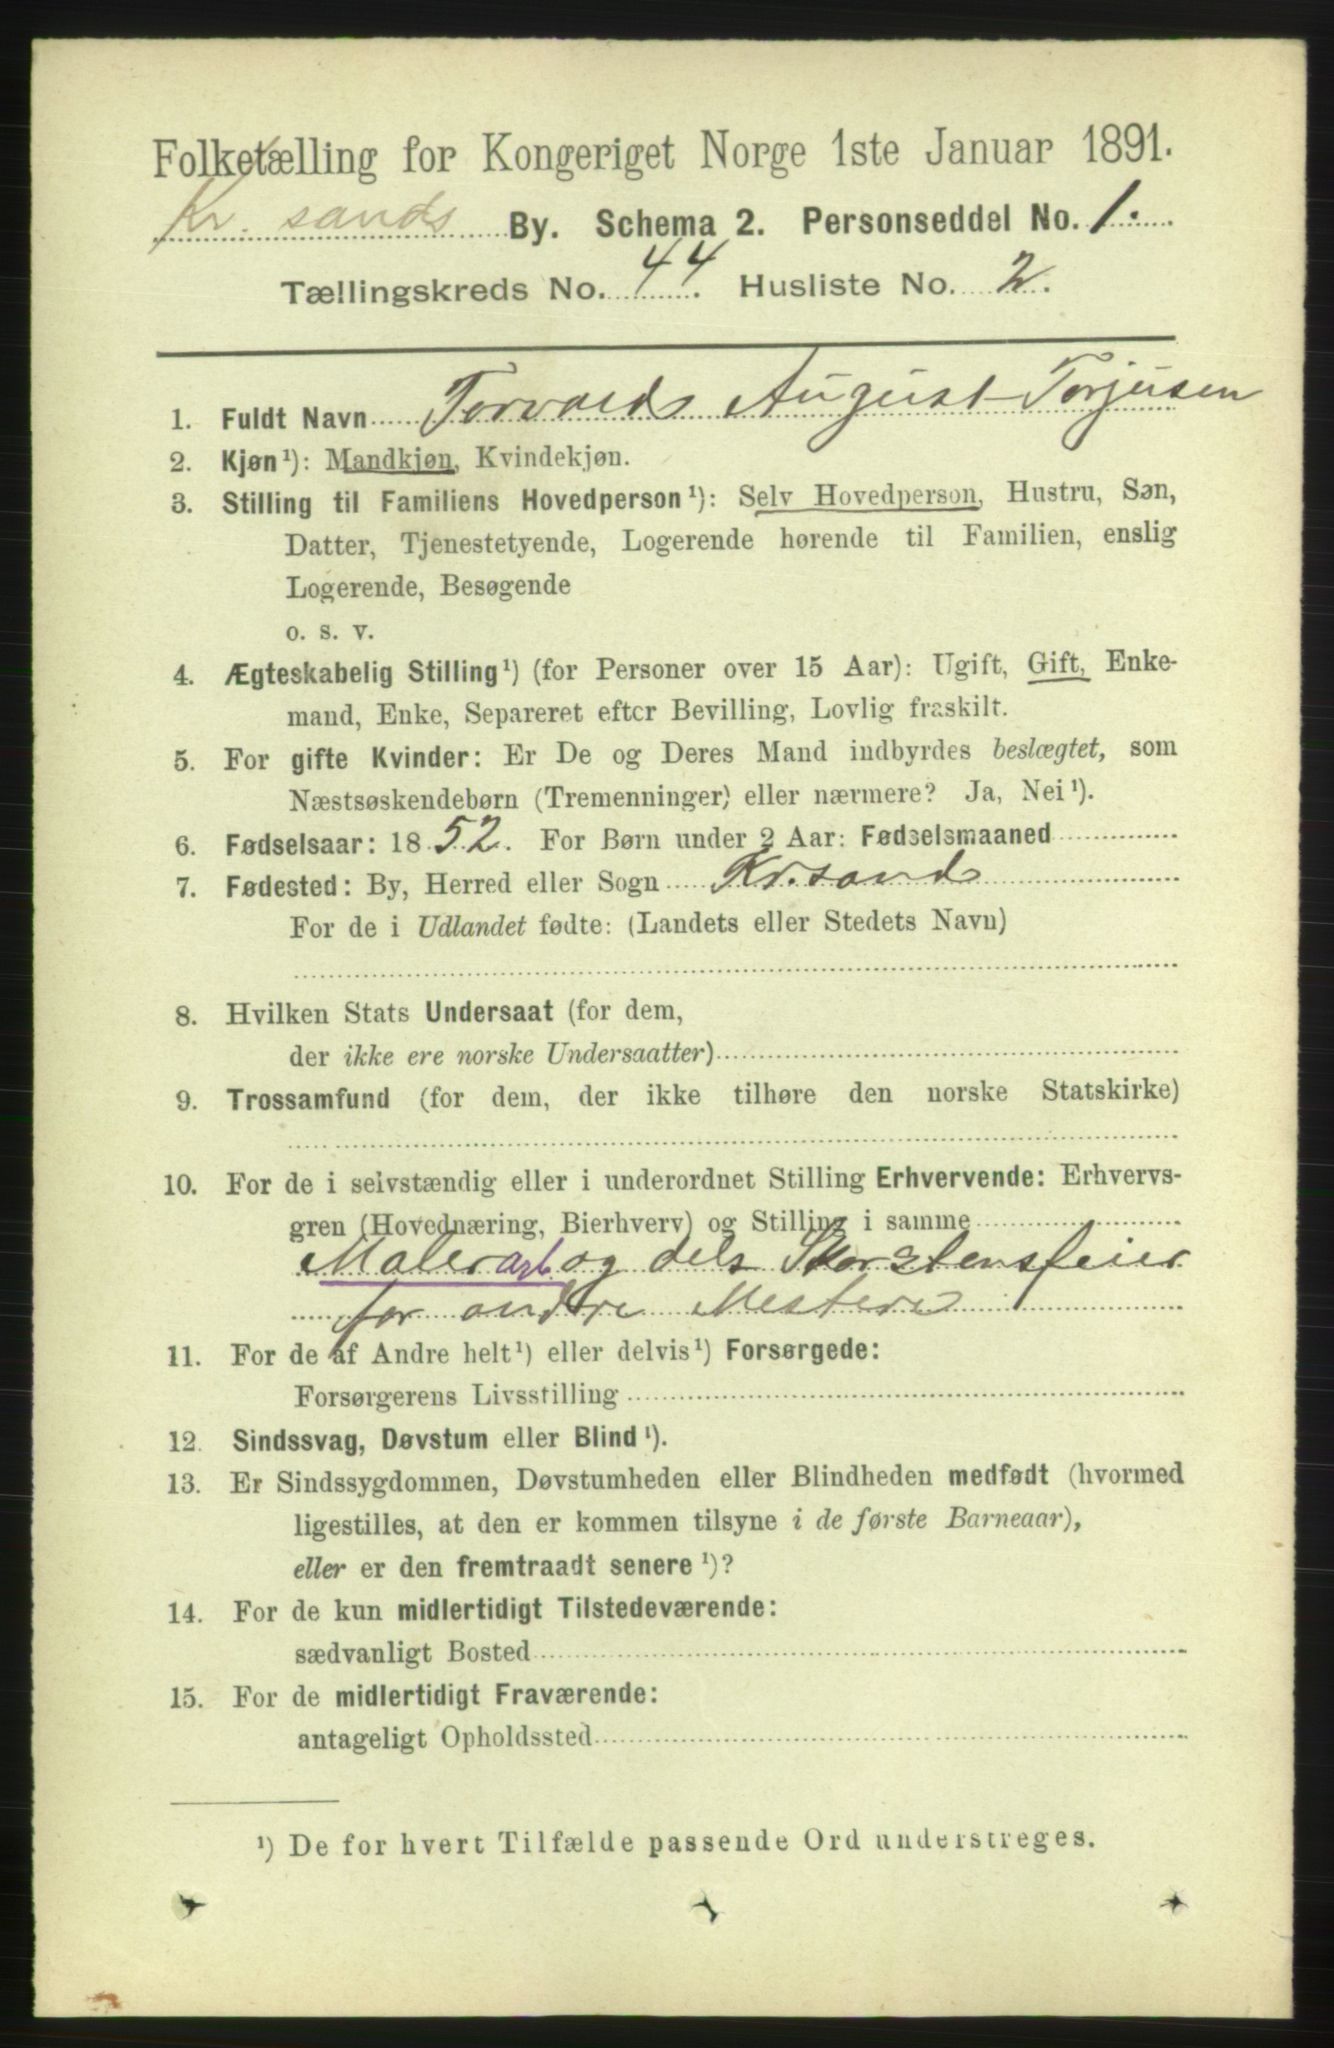 Folketælling for Kongeriget Norge 1ste Januar 1891.
Kr. sands By. Schema 2. Personseddel No. 1.
Tællingskreds No. 44. Husliste No. 2.
1. Fuldt Navn Torvald August Torjusen
2. Kjøn¹): Mandkjøn, Kvindekjøn.
3. Stilling til Familiens Hovedperson¹): Selv Hovedperson, Hustru, Søn,
Datter, Tjenestetyende, Logerende hørende til Familien, enslig
Logerende, Besøgende
o. s. v.
4. Ægteskabelig Stilling¹) (for Personer over 15 Aar): Ugift, Gift, Enke-
mand, Enke, Separeret efter Bevilling, Lovlig fraskilt.
5. For gifte Kvinder: Er De og Deres Mand indbyrdes beslægtet, som
Næstsøskendebørn (Tremenninger) eller nærmere? Ja, Nei¹).
6. Fødselsaar: 1852. For Børn under 2 Aar: Fødselsmaaned
7. Fødested: By, Herred eller Sogn Kr.sand
For de i Udlandet fødte: (Landets eller Stedets Navn)
8. Hvilken Stats Undersaat (for dem,
der ikke ere norske Undersaatter)
9. Trossamfund (for dem, der ikke tilhøre den norske Statskirke)
10. For de i selvstændig eller i underordnet Stilling Erhvervende: Erhvervs-
gren (Hovednæring, Bierhverv) og Stilling i samme
Malerarb og dels Skorstensfeier
for andre Mestere
11. For de af Andre helt¹) eller delvis¹) Forsørgede:
Forsørgerens Livsstilling
12. Sindssvag, Døvstum eller Blind¹).
13. Er Sindssygdommen, Døvstumheden eller Blindheden medfødt (hvormed
ligestilles, at den er kommen tilsyne i de første Barneaar),
eller er den fremtraadt senere¹)?
14. For de kun midlertidigt Tilstedeværende:
sædvanligt Bosted
15. For de midlertidigt Fraværende:
antageligt Opholdssted
¹) De for hvert Tilfælde passende Ord understreges.